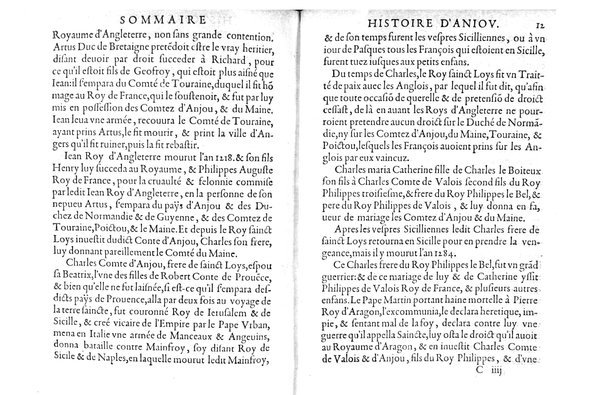 SOMMAIRE
Royaume d'Angleterre, non sans grande contention.
Artus Duc de Bretaigne pretēdoit estre le vray heritier,
disant deuoir par droit succeder à Richard, pour
ce qu'il estoit fils de Geofroy, qui estoit plus aisné que
Iean: il s'empara du Comté de Touraine, duquel il fit hō
mage au Roy de France, qui le soustenoit, & fut par luy
mis en possession des Comtez d'Anjou, & du Maine.
Iean leua vne armée, recouura le Comté de Touraine,
ayant prins Artus, le fit mourir, & print la ville d'An-
gers qu'il fit ruiner, puis la rebastit.
Iean Roy d'Angleterre mourut l'an 1218. & son fils
Henry luy succeda au Royaume, & Philippes Auguste
Roy de France, pour la cruaulté & felonnie commise
par ledit Iean Roy d'Angleterre, en la personne de son
nepueu Artus, s'empara du pays d'Anjou & des Du-
chez de Normandie & de Guyenne, & des Comtez de
Touraine, Poictou, & le Maine. Et depuis le Roy sainct
Loys inuestit dudict Conte d'Anjou, Charles son frere,
luy donnant pareillement le Comté du Maine.
Charles Comte d'Anjou, frere de sainct Loys, espou
sa Beatrix, l'vne des filles de Robert Conte de Prouēce,
& bien qu'elle ne fut laisnée, si est-ce qu'il s'empara des-
dicts pays de Prouence, alla par deux fois au voyage de
la terre saincte, fut couronné Roy de Ierusalem & de
Sicille, & creé vicaire de l'Empire par le Pape Vrban,
mena en Italie vne armée de Manceaux & Angeuins,
donna bataille contre Mainfroy, soy disant Roy de
Sicile & de Naples, en laquelle mourut ledit Mainfroy,
HISTOIRE D'ANIOV. 12
& de son temps furent les vespres Sicilliennes, ou à vn
iour de Pasques tous les François qui estoient en Sicille,
furent tuez iusques aux petits enfans.
Du temps de Charles, le Roy sainct Loys fit vn Trait-
té de paix auec les Anglois, par lequel il fut dit, qu'afin
que toute occasiō de querelle & de pretensiō de droict
cessast, de là en auant les Roys d'Angleterre ne pour-
roient pretendre aucun droict sur le Duché de Normā-
die, ny sur les Comtez d'Anjou, du Maine, Touraine, &
Poictou, lesquels les François auoient prins sur les An-
glois par eux vaincuz.
Charles maria Catherine fille de Charles le Boiteux
son fils à Charles Comte de Valois second fils du Roy
Philippes troisiesme, & frere du Roy Philippes le Bel, &
pere du Roy Philippes de Valois, & luy donna en fa,
ueur de mariage les Comtez d'Anjou & du Maine.
Apres les vespres Sicilliennes ledit Charles frere de
sainct Loys retourna en Sicille pour en prendre la ven-
geance, mais il y mourut l'an 1284.
Ce Charles frere du Roy Philippes le Bel, fut vn grād
guerrier: & de ce mariage de luy & de Catherine yssit
Philippes de Valois Roy de France, & plusieurs autres
enfans. Le Pape Martin portant haine mortelle à Pierre
Roy d'Aragon, l'excommunia, le declara heretique, im-
pie, & sentant mal de la foy, declara contre luy vne
guerre qu'il appella Saincte, luy osta le droict qu'il auoit
au Royaume d'Aragon, & en inuestit Charles Comte
de Valois & d'Anjou, fils du Roy Philippes, & d'vne
C iiij